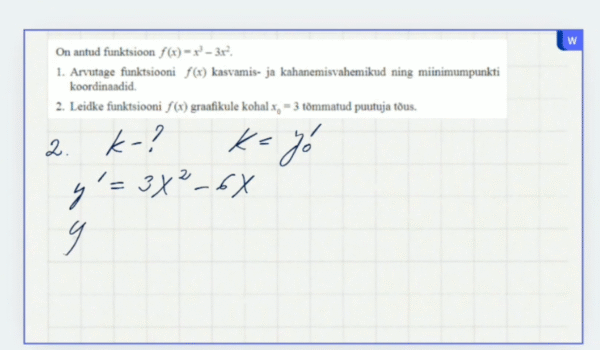 W
On antud funktsioon f(x) = x³ – 3x².
1. Arvutage funktsiooni f(x) kasvamis- ja kahanemisvahemikud ning miinimumpunkti
koordinaadid.
2. Leidke funktsiooni f(x) graafikule kohal x₀ = 3 tõmmatud puutuja tõus.
2. k - ? k = y₀'
y' = 3x² – 6x
y